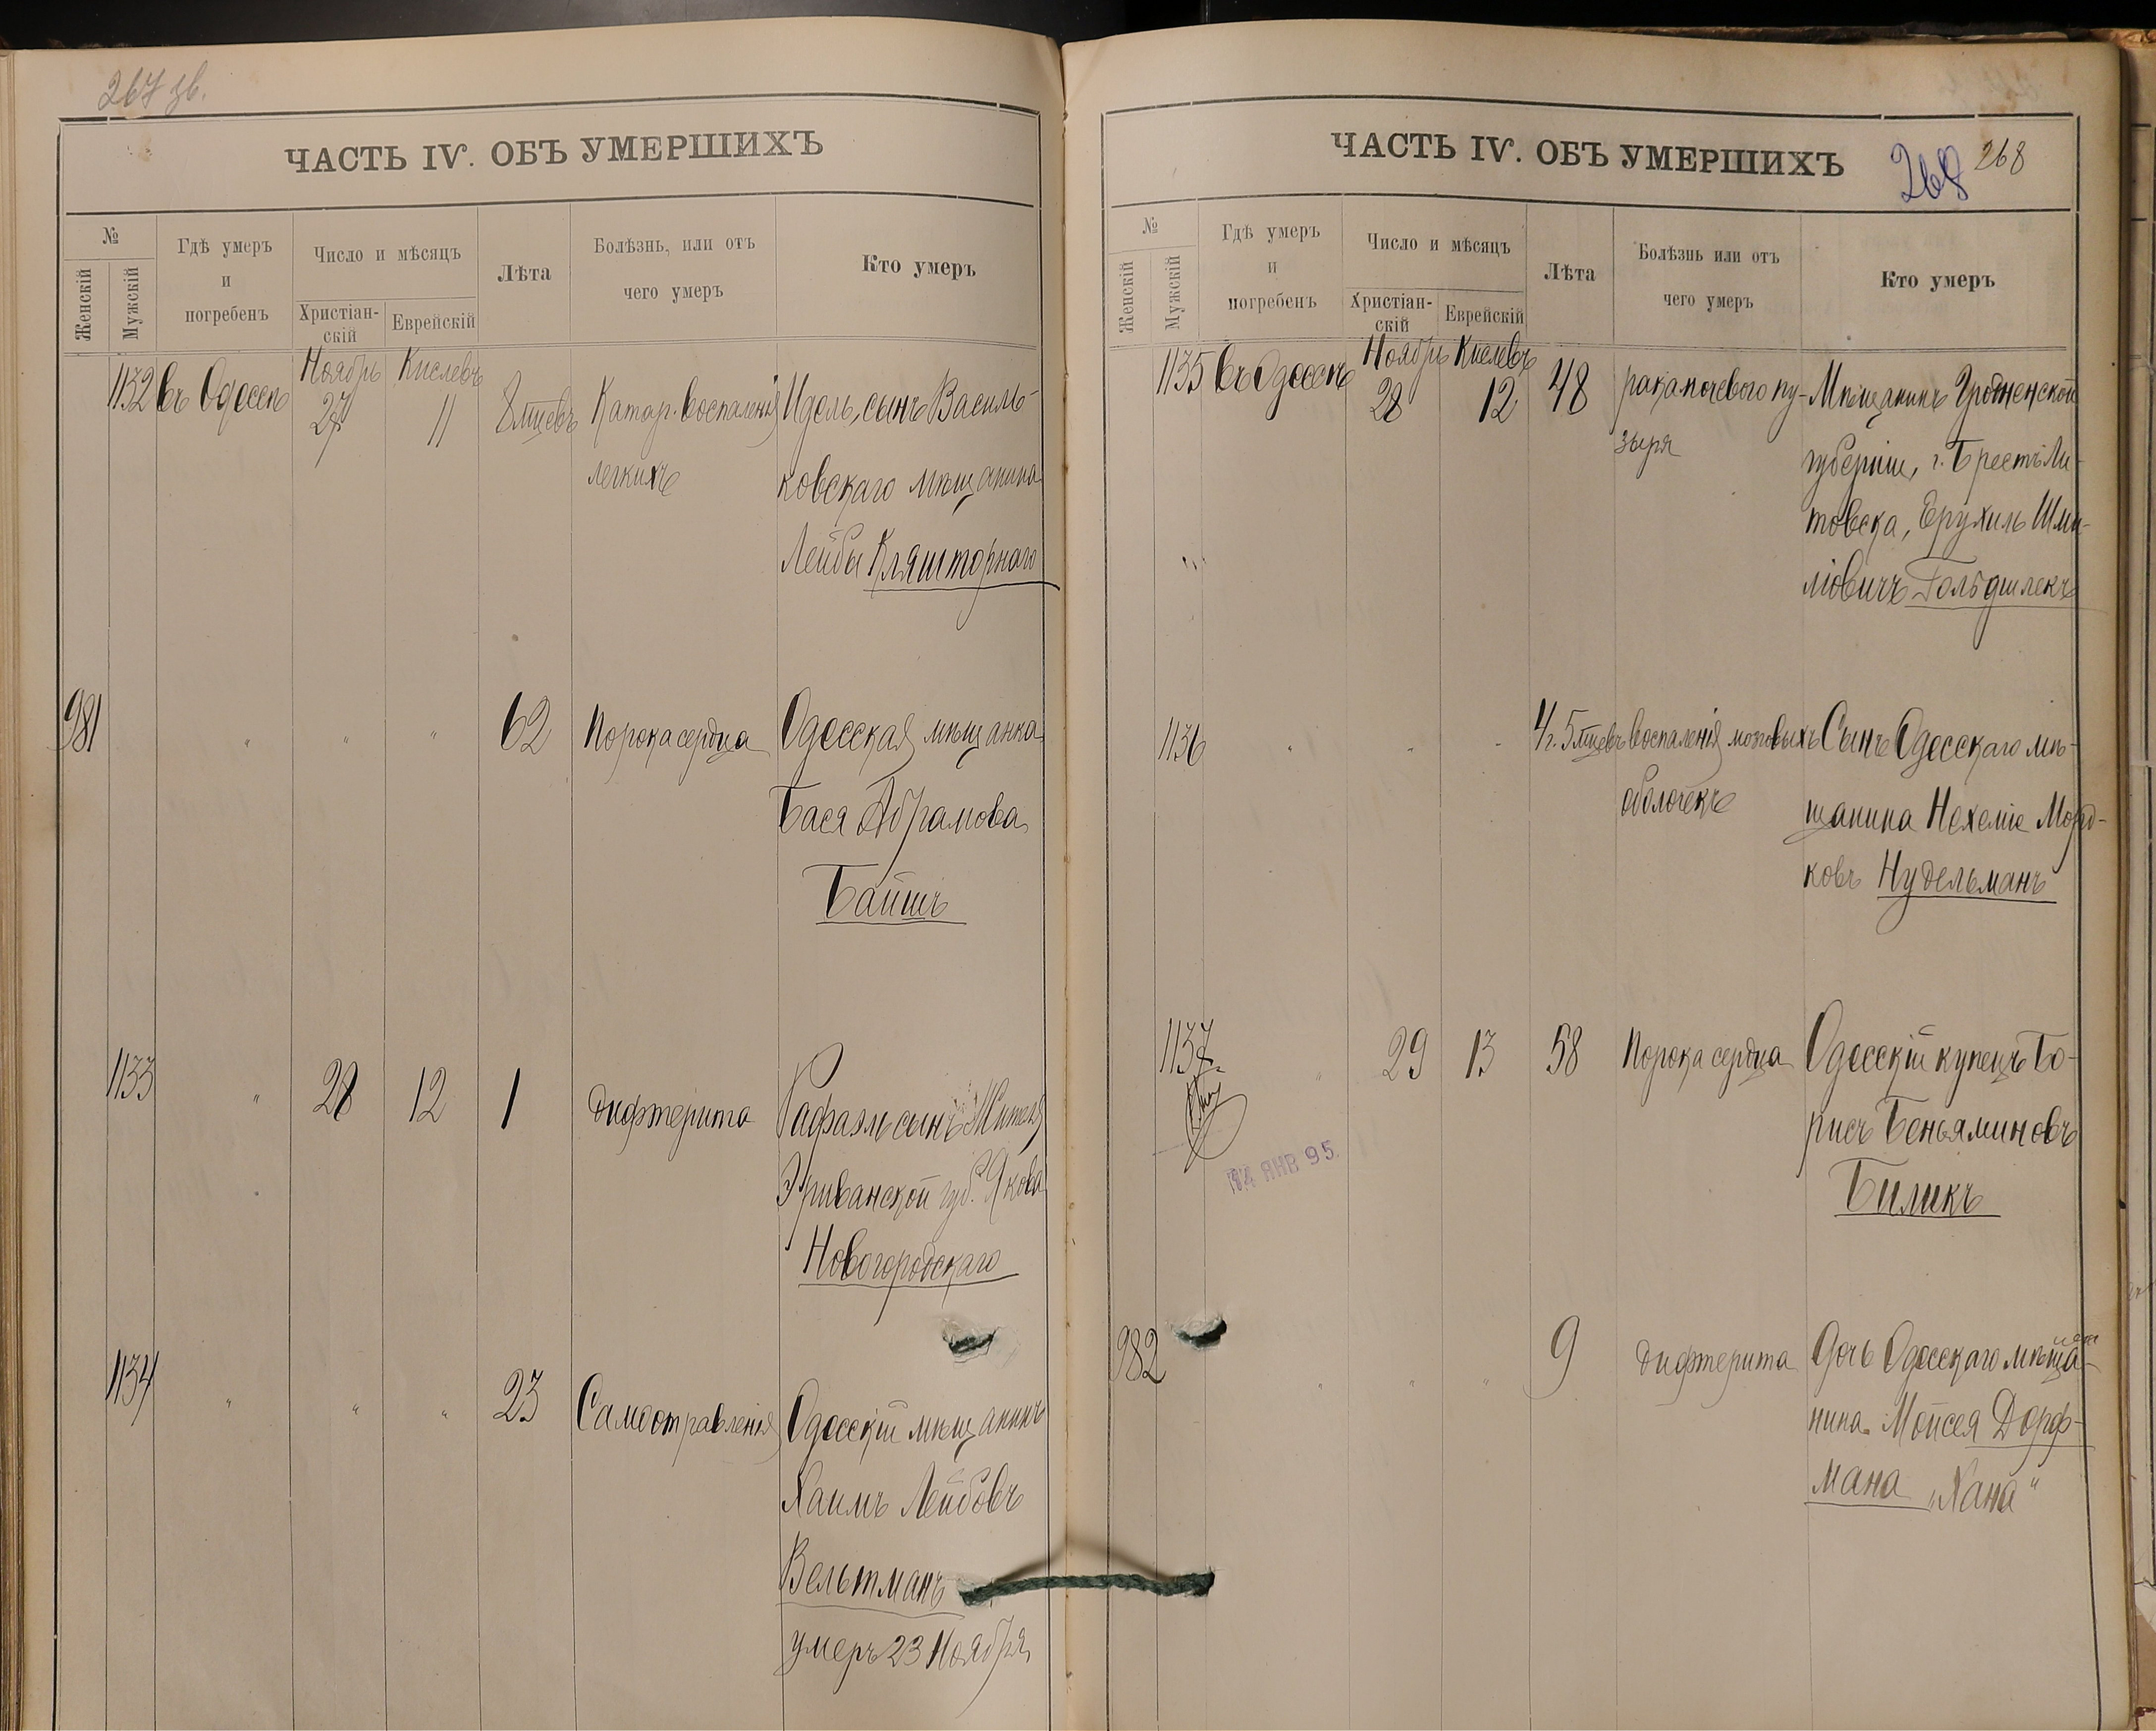 267 зв.
ЧАСТЬ IV. ОБЪ УМЕРШИХЪ
№
Женскій
Мужскій
Гдѣ умеръ
и
погребенъ
Число и мѣсяцъ
Христіан-
скій
Еврейскій
Лѣта
Болѣзнь, или отъ
чего умеръ
Кто умеръ
Ноябрь Кислевъ
1132 въ Одессѣ 27 11 8 мцевъ Катар. воспаленія Идель, сынъ Василь-
легкихъ ковскаго мѣщанина
Лейбы Кляшторнаго
981 " " " 62 Порока сердца Одесская мѣщанка
Бася Абрамова
Байшъ
1133 " 28 12 1 дифтерита Рафаэль сынъ Жителя
Эриванской губ. Якова
Новогородскаго
1134 " " " 23 Самоотравленія Одесскій мѣщанинъ
Хаимъ Лейбовъ
Вельтманъ
умеръ 23 Ноября
ЧАСТЬ IV. ОБЪ УМЕРШИХЪ
268 268
№
Женскій
Мужскій
Гдѣ умеръ
и
погребенъ
Число и мѣсяцъ
Христіан-
скій
Еврейскій
Лѣта
Болѣзнь или отъ
чего умеръ
Кто умеръ
Ноябрь Кислевъ
1135 въ Одессѣ 28 12 48 рака мочевого пу- Мѣщанинъ Гродненской
зыря губерніи, г. Брестъ Ли-
товска, Ерухиль Шми-
ліовичъ Гольдшлекъ
1136 " " " 4 г. 5 мцевъ воспаленія мозговыхъ Сынъ Одесскаго мѣ-
оболочекъ щанина Нехеміе Морд-
ковъ Нудельманъ
1137 " 29 13 58 Порока сердца Одесскій купецъ Бо-
рисъ Беньяминовъ
14 ЯНВ 95.
Биликъ
982 " " " 9 дифтерита Дочь Одесскаго мѣща-
нина Мойсея Дорф-
мана „Хана"